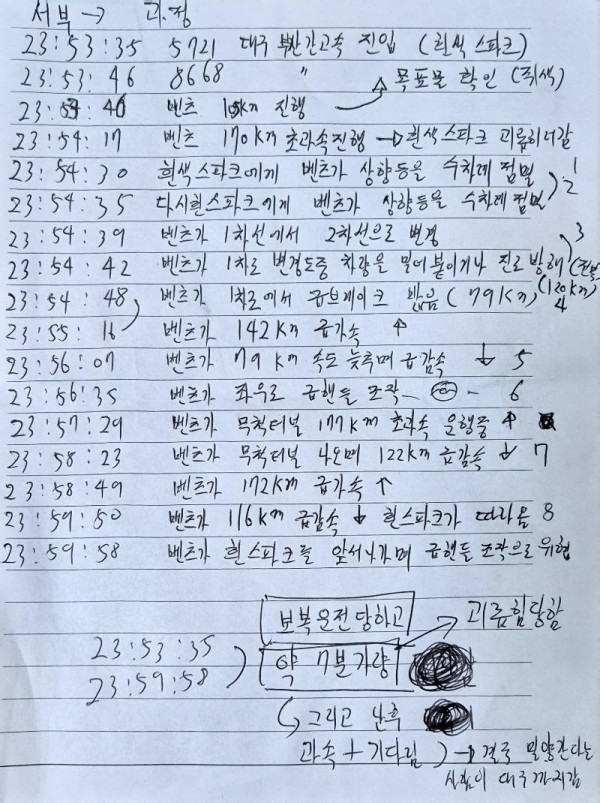 서부 → 과정
23:53:35 5721 대구 부산간고속 진입 (흰색 스파크)
23:53:46 8668 〃 → 목표물 확인 (쥐색)
벤츠 105km 진행
23:54:17 벤츠 170km 초과속진행 → 흰색스파크 괴롭히러감
23:54:30 흰색스파크에게 벤츠가 상향등을 수차례 점멸 1
23:54:35 다시흰스파크에게 벤츠가 상향등을 수차례 점멸 2
23:54:39 벤츠가 1차선에서 2차선으로 변경 3
23:54:42 벤츠가 1차로 변경도중 차량을 밀어붙이거나 진로 방해
23:54:48 벤츠가 1차로에서 급브레이크 밟음 (79km) (120km) 4
23:55:16 벤츠가 142km 급가속 ↑
23:56:07 벤츠가 79km 속도 늦추며 급감속 ↓ 5
23:56:35 벤츠가 좌우로 급핸들 조작 6
23:57:29 벤츠가 무척터널 177km 초과속 운행중 ↑
23:58:23 벤츠가 무척터널 나오며 122km 급감속 ↓ 7
23:58:49 벤츠가 172km 급가속 ↑
23:59:50 벤츠가 116km 급감속 ↓ 흰스파크가 따라옴 8
23:59:58 벤츠가 흰스파크를 앞서나가며 급핸들 조작으로 위협
보복운전 당하고 괴롭힘당함
23:53:35
23:59:58 약 7분가량
그리고 난후
과속 + 기다림 → 결국 밀양간다는
사람이 대구까지감